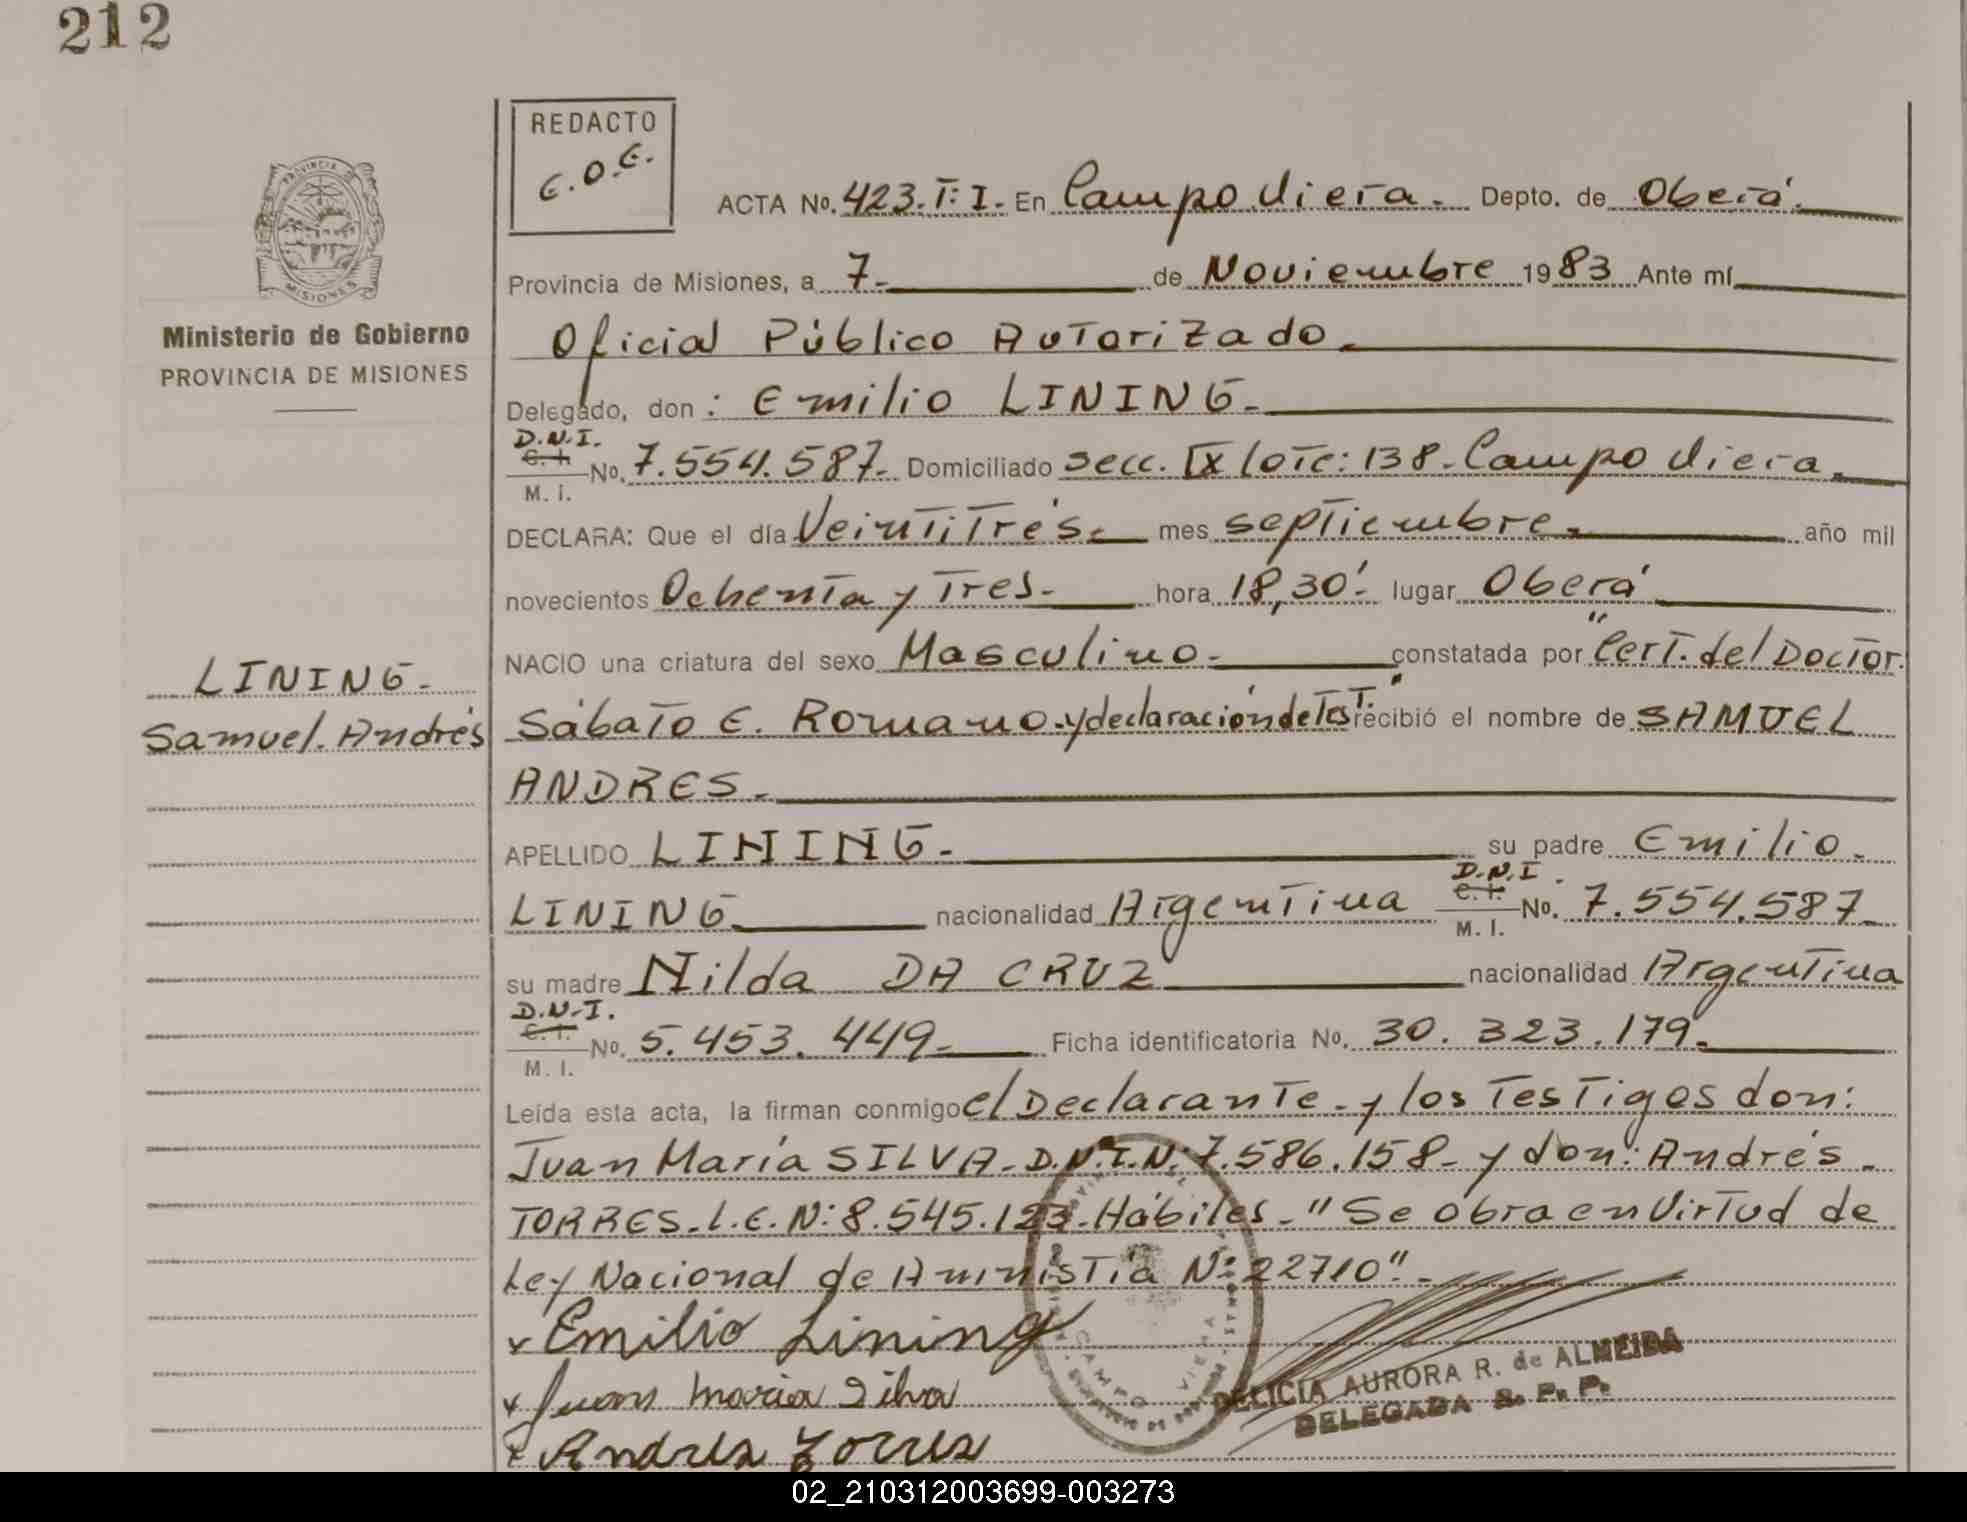 212
REDACTO
E.O.E.
PROVINCIA
MISIONES
Ministerio de Gobierno
PROVINCIA DE MISIONES
LINING-
Samuel. Andrés
ACTA No. 423. T: I. En Campo Viera. Depto. de Oberá.
Provincia de Misiones, a 7- de Noviembre 1983 Ante mí
Oficial Público Autorizado.
Delegado, don: Emilio LINING-
D.N.I.
C. I.
M. I. No. 7.554.587- Domiciliado secc. IX lote: 138- Campo Viera.
DECLARA: Que el día Veintitrés- mes septiembre- año mil
novecientos Ochenta y Tres- hora 18,30'- lugar Oberá
NACIO una criatura del sexo Masculino- constatada por "Cert. del Doctor
Sábato E. Romano-y declaración de Test." recibió el nombre de SAMUEL
ANDRES-
APELLIDO LINING- su padre Emilio-
LINING nacionalidad Argentina D.N.I. C. I. M. I. No. 7.554.587-
su madre Nilda DA CRUZ nacionalidad Argentina
D.N.I.
C. I.
M. I. No. 5.453.449- Ficha identificatoria No. 30.323.179-
Leída esta acta, la firman conmigo el Declarante- y los Testigos don:
Juan María SILVA- D.N.I.N: 7.586.158- y don: Andrés-
TORRES- L.E. N: 8.545.123- Hábiles- "Se obra en Virtud de
Ley Nacional de Amnistia Nº 22710"-
x Emilio Lining
x Juan Maria Silva
x Andres Torres
CAMPO VIERA
DELICIA AURORA R. de ALMEIDA
DELEGADA R. P. P.
02_210312003699-003273